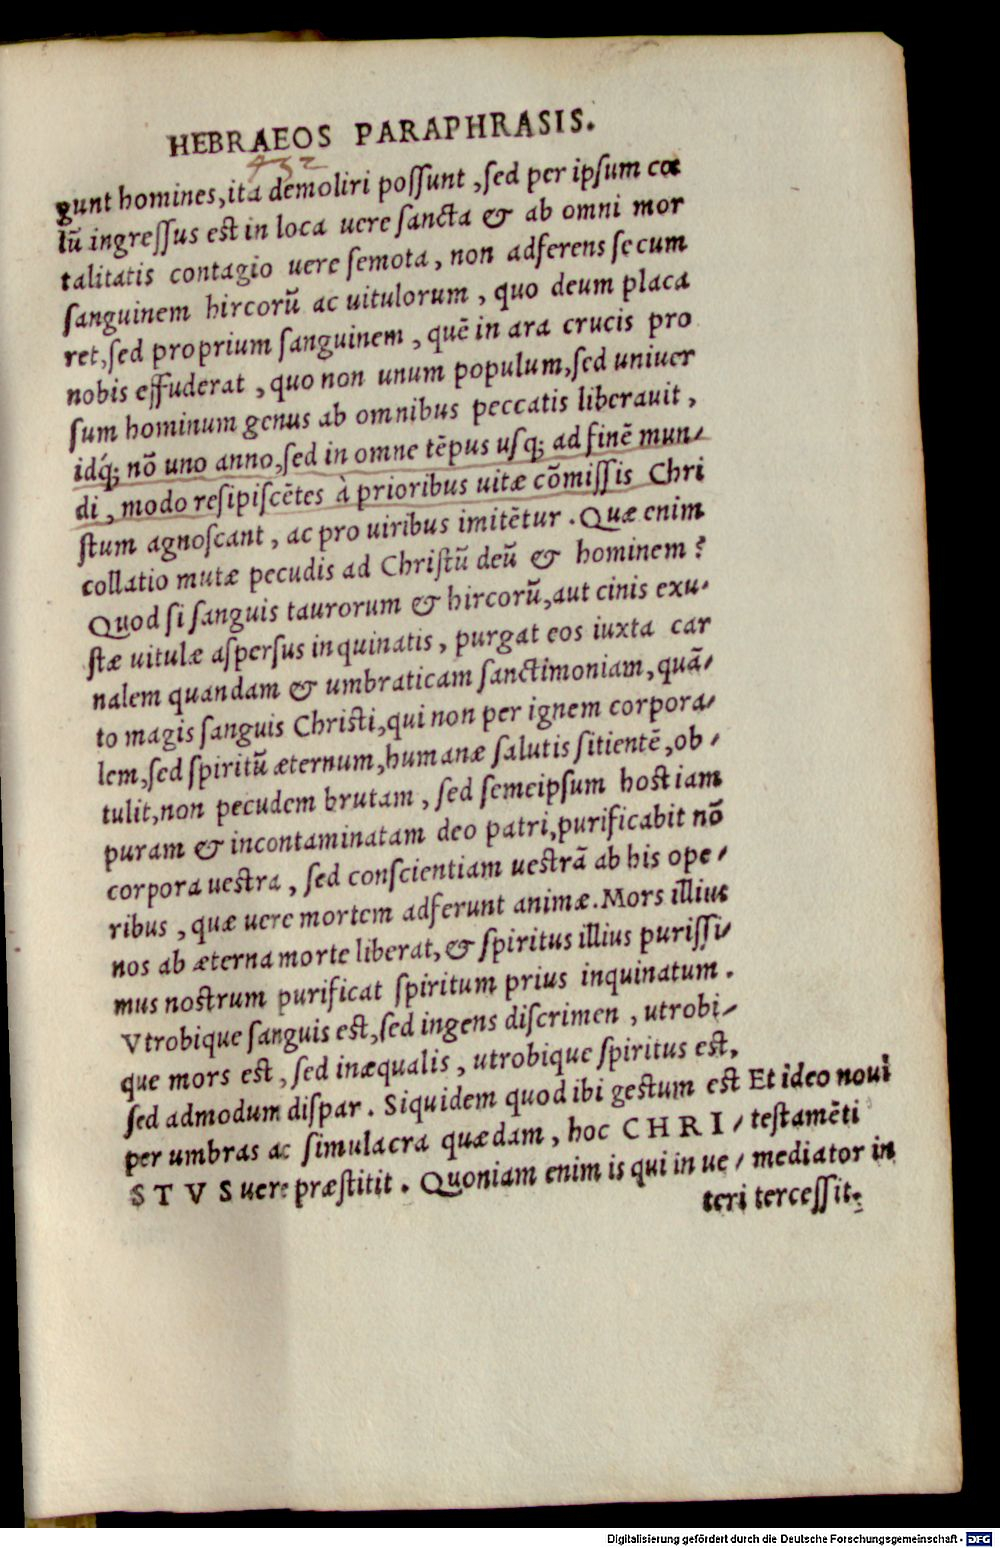 HEBRAEOS PARAPHRASIS.
432
gunt homines, ita demoliri poſſunt, ſed per ipſum cœ
lū ingreſſus est in loca uere ſancta & ab omni mor
talitatis contagio uere ſemota, non adferens ſecum
ſanguinem hircorū ac uitulorum, quo deum placa
ret, ſed proprium ſanguinem, quē in ara crucis pro
nobis effuderat, quo non unum populum, ſed uniuer
ſum hominum genus ab omnibus peccatis liberauit,
idq́; nō uno anno, ſed in omne tēpus uſq; ad finē mun⸗
di, modo reſipiſcētes à prioribus uitæ cōmiſſis Chri
ſtum agnoſcant, ac pro uiribus imitētur. Quæ enim
collatio mutæ pecudis ad Chriſtū deū & hominem?
Quod ſi ſanguis taurorum & hircorū, aut cinis exu⸗
ſtæ uitulæ aſperſus inquinatis, purgat eos iuxta car
nalem quandam & umbraticam ſanctimoniam, quā⸗
to magis ſanguis Chriſti, qui non per ignem corpora⸗
lem, ſed ſpiritū æternum, humanæ ſalutis ſitientē, ob⸗
tulit, non pecudem brutam, ſed ſemeipſum hostiam
puram & incontaminatam deo patri, purificabit nō
corpora uestra, ſed conſcientiam uestrā ab his ope⸗
ribus, quæ uere mortem adferunt animæ. Mors illius
nos ab æterna morte liberat, & ſpiritus illius puriſſi⸗
mus nostrum purificat ſpiritum prius inquinatum.
Vtrobique ſanguis est, ſed ingens diſcrimen, utrobi⸗
que mors est, ſed inæqualis, utrobique ſpiritus est,
ſed admodum diſpar. Siquidem quod ibi gestum est Et ideo noui
per umbras ac ſimulacra quædam, hoc CHRI⸗ testamēti
STVS uere præſtitit. Quoniam enim is qui in ue⸗ mediator in
teri terceſſit.